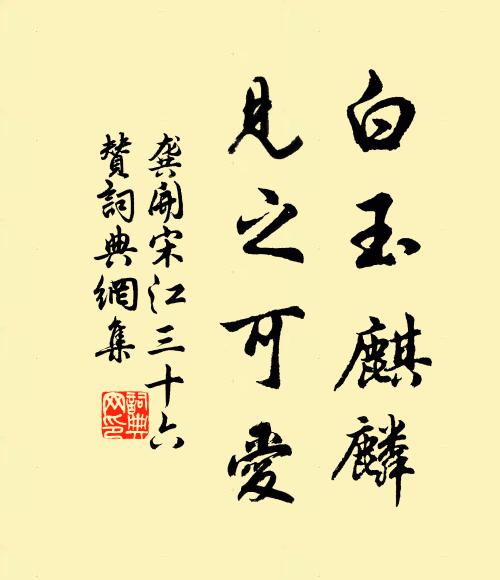 白玉麒麟
見之可愛
龔開宋江三十六
贊詞典網集
詞典网印